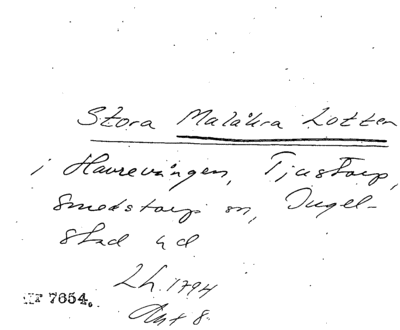 Stora Malåkra Lotten
i Havrevången, Tjustorp,
Smedstorp sn, Ingel-
stad hd
Lh. 1794
Akt 8.
NF 7654.